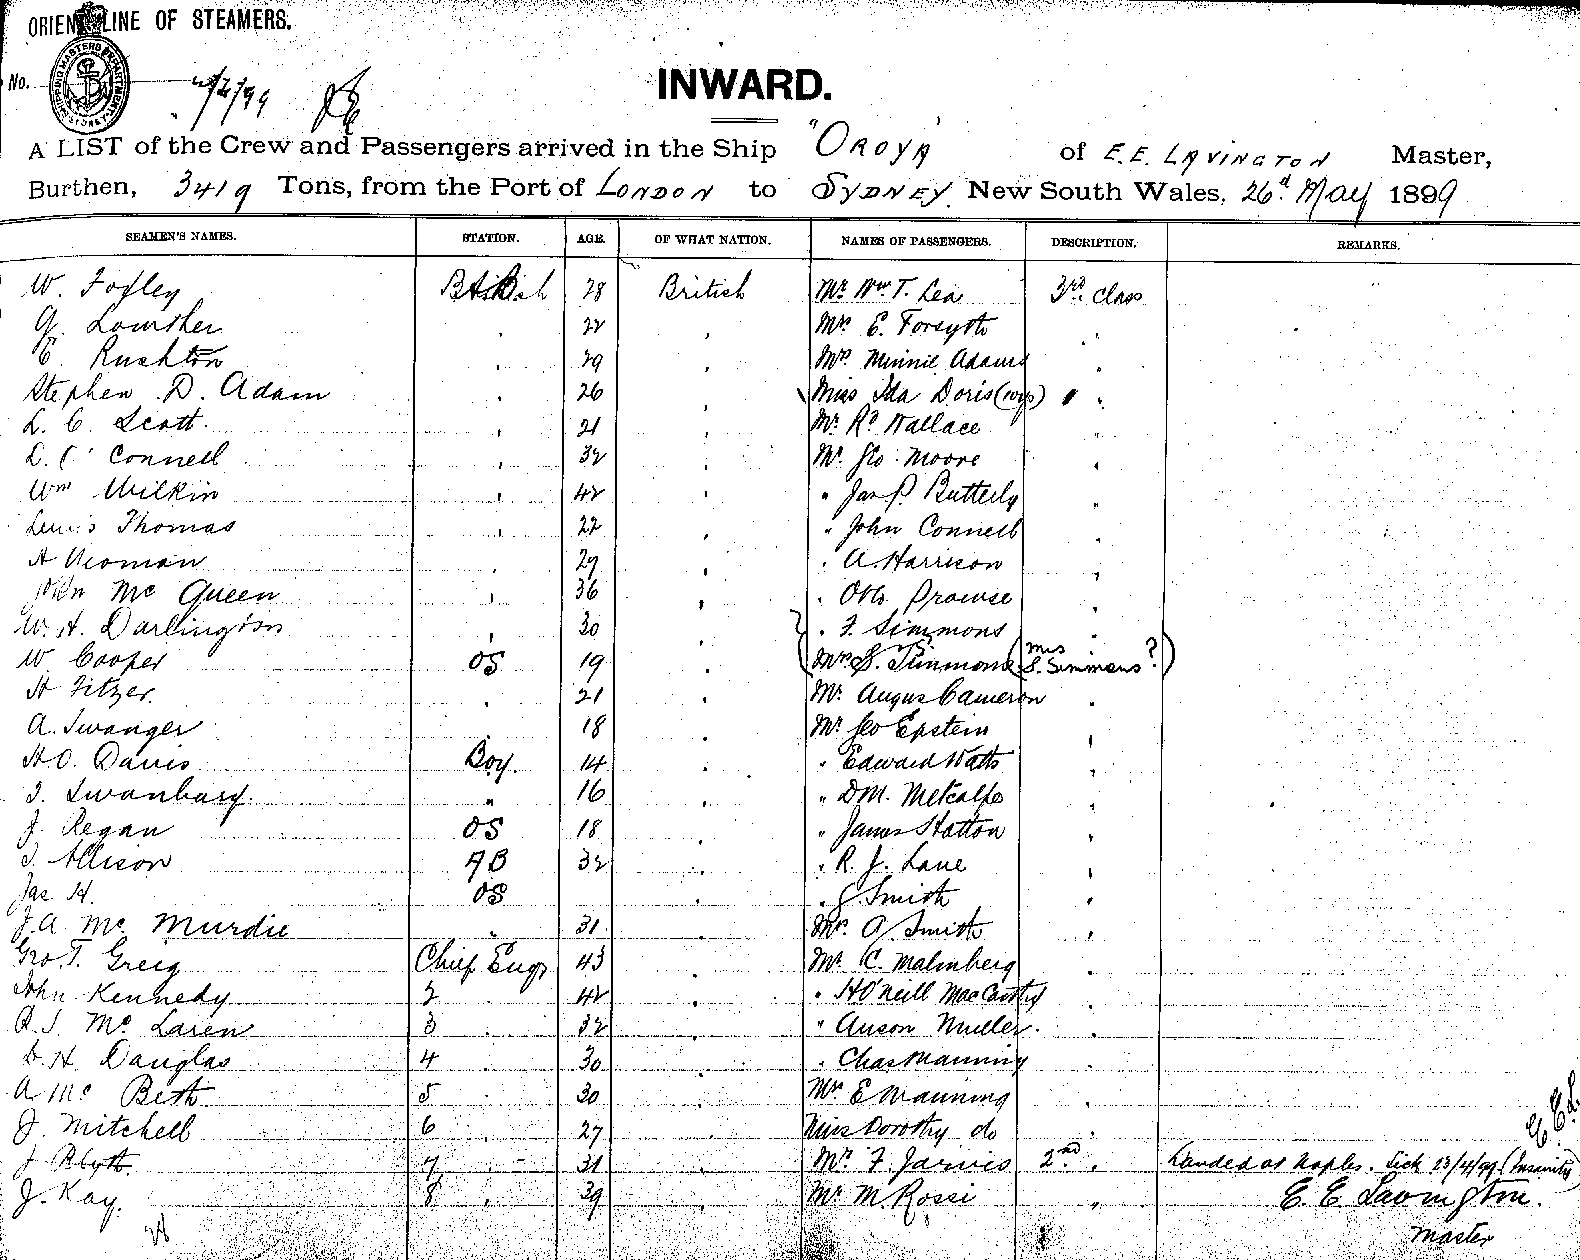 ORIENT LINE OF STEAMERS.
No.
INWARD.
A LIST of the Crew and Passengers arrived in the Ship "OROYA" of E.E. LAVINGTON Master,
Burthen, 3419 Tons, from the Port of LONDON to SYDNEY New South Wales, 26th May 1899
SEAMEN'S NAMES. STATION. AGE. OF WHAT NATION. NAMES OF PASSENGERS. DESCRIPTION. REMARKS.
W. Foxley 28 British Mr Wm T. Lea 3rd Class
G. Lowther 22 Mrs E. Forsyth
E. Rushton 29 Mrs Minnie Adams
Stephen D. Adam 26 Miss Ida Doris
L. C. Scott 21 Mr Rd Wallace
Connell 32 Mr Geo Moore
Wm Wilkin 42 " Jas P. Butterly
Lewis Thomas 22 " John Connell
A Yeoman 29 " A Harrison
John Mc Queen 36 " Otto Prowse
W. H. Darlington 30 " F. Simmons
W Cooper OS 19 Mrs S. Timmons (Mrs S. Simmons?)
H Fitzer 21 Mr Angus Cameron
A. Swanger 18 Mr Geo Epstein
H.O. Davis Boy. 14 " Edward Watts
Swanbury " 16 " D M. Metcalfe
J. Regan OS 18 " James Hatton
Allison AB 32 " R. J. Lane
Jas H. OS " G Smith
J.A Mc Murdie " 31 Mrs A Smith
Geo. T. Greig Chief Engr 43 Mr C. Malmberg
John Kennedy 2 42 " H O'Neill MacCarthy
R.S. Mc Laren 3 32 " Anson Muller
D. H. Douglas 4 30 " Chas Manning
A Mc Beth 5 30 Mrs E Manning
J. Mitchell 6 27 Miss Dorothy do
J Blyth 7 31 Mr F. Jarvis 2nd " Landed at Naples. Sick 23/4/99 (Insanity)
J. Kay. 8 39 Mr M. Rossi " E. E. Lavington.
Master